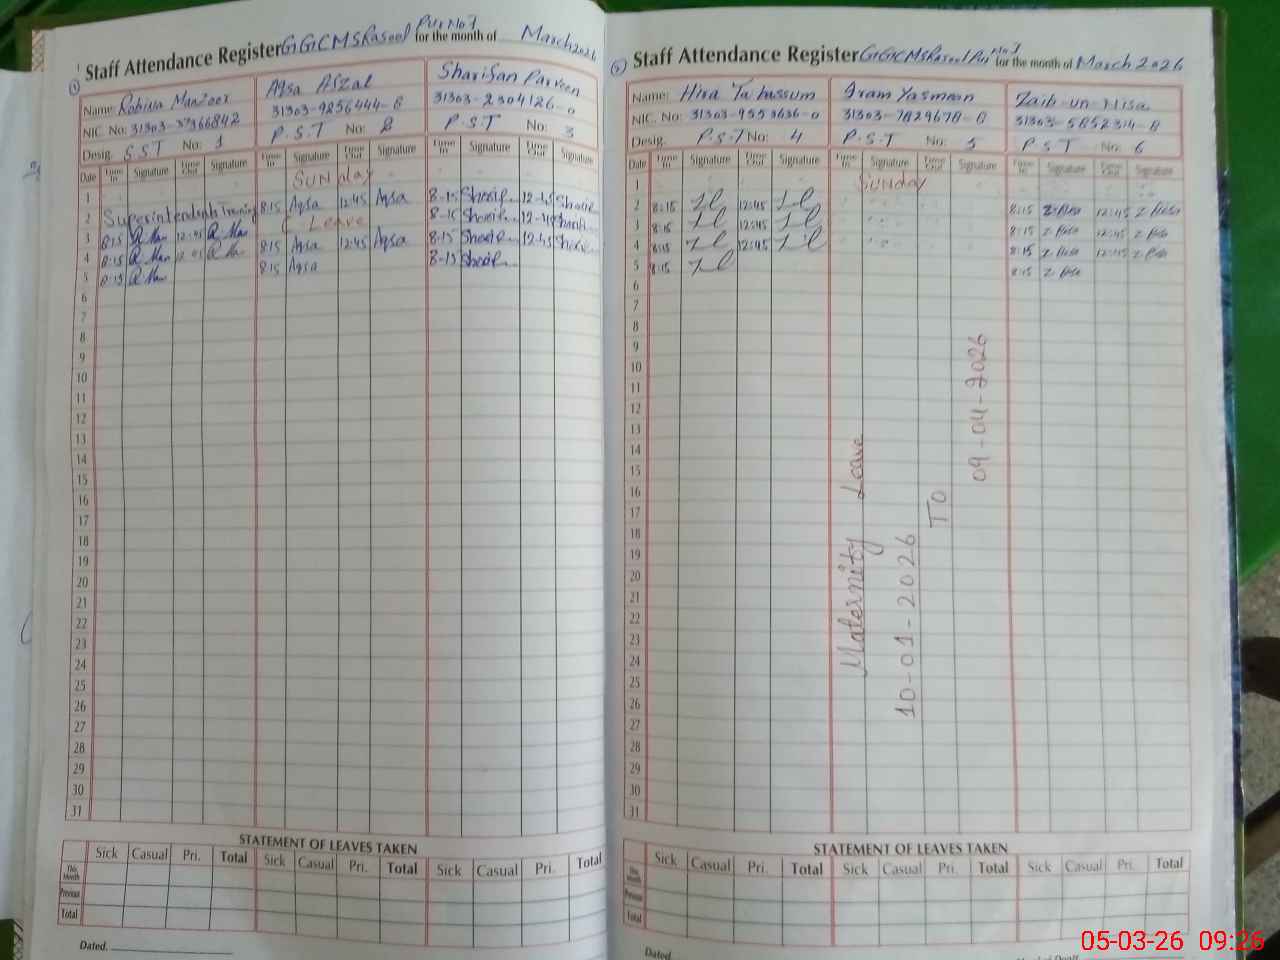 Staff Attendance Register GGCMS Rasool Pur No 1 for the month of March 2026
Name: Robina Manzoor
NIC. No: 31303-
Desig. S.S.T No: 1
Aqsa Afzal
31303-9256444-8
P.S.T No: 2
Sharifan Parveen
31303-2304126-0
P.S.T No: 3
Date Time In Signature Time Out Signature Time In Signature Time Out Signature Time In Signature Time Out Signature
1 Sunday
2 Superintendent Training 8:15 Aqsa 12:45 Aqsa 8-15 12-45
3 8:15 12:45 C Leave 8-15
4 8:15 8:15 Aqsa 12:45 Aqsa 8:15 12-45
5 8:15 8:15 Aqsa 8-15
6
7
8
9
10
11
12
13
14
15
16
17
18
19
20
21
22
23
24
25
26
27
28
29
30
31
STATEMENT OF LEAVES TAKEN
Sick Casual Pri. Total Sick Casual Pri. Total Sick Casual Pri. Total
This Month
Previous
Total
Dated.
Staff Attendance Register GGCMS Rasool Pur No 1 for the month of March 2026
Name: Hira Tabassum
NIC. No: 31303-9553636-0
Desig. P.S.T No: 4
Iram Yasmeen
31303-7829678-8
P.S.T No: 5
Zaib-un-Nisa
31303-5852314-8
P.S.T No: 6
Date Time In Signature Time Out Signature Time In Signature Time Out Signature Time In Signature Time Out Signature
1 Sunday
2 8:15 12:45 8:15 12:45
3 8:15 12:45 8:15 12:45
4 8:15 12:45 8:15 12:45
5 8:15 8:15
6
7
8
9
10
11
12
13
14
15
16
17
18
19
20
21
22
23
24
25
26
27
28
29
30
31
Maternity Leave
10-01-2026
To
09-04-2026
STATEMENT OF LEAVES TAKEN
Sick Casual Pri. Total Sick Casual Pri. Total Sick Casual Pri. Total
This Month
Previous
Total
Dated.
05-03-26 09:26